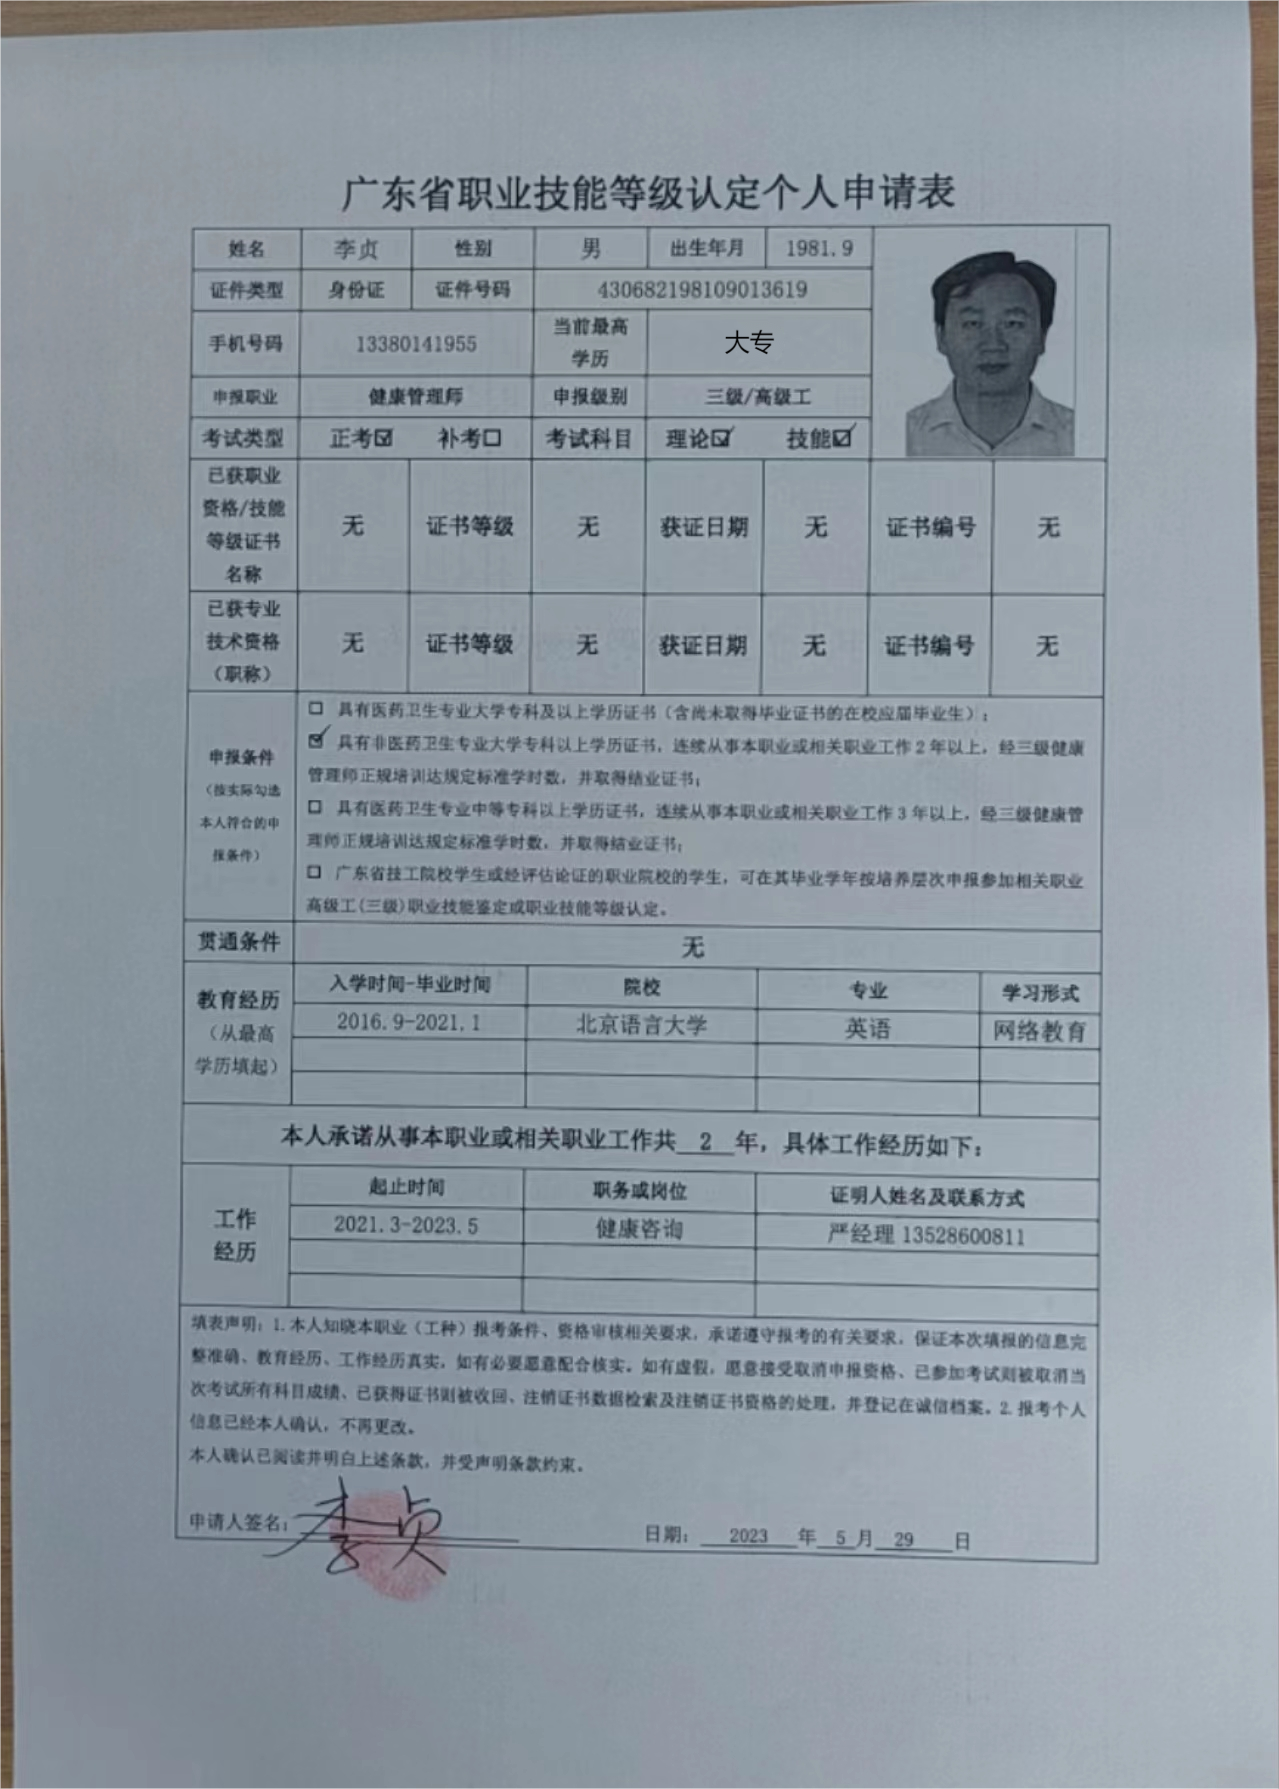 广东省职业技能等级认定个人申请表
姓名 李贞 性别 男 出生年月 1981.9
证件类型 身份证 证件号码 430682198109013619
手机号码 13380141955 当前最高学历 大专
申报职业 健康管理师 申报级别 三级/高级工
考试类型 正考☑ 补考☐ 考试科目 理论☑ 技能☑
已获职业
资格/技能
等级证书
名称
无 证书等级 无 获证日期 无 证书编号 无
已获专业
技术资格
（职称）
无 证书等级 无 获证日期 无 证书编号 无
申报条件
（按实际勾选
本人符合的申
报条件）
☐ 具有医药卫生专业大学专科及以上学历证书（含尚未取得毕业证书的在校应届毕业生）；
☑ 具有非医药卫生专业大学专科以上学历证书，连续从事本职业或相关职业工作2年以上，经三级健康
管理师正规培训达规定标准学时数，并取得结业证书；
☐ 具有医药卫生专业中等专科以上学历证书，连续从事本职业或相关职业工作3年以上，经三级健康管
理师正规培训达规定标准学时数，并取得结业证书；
☐ 广东省技工院校学生或经评估论证的职业院校的学生，可在其毕业学年按培养层次申报参加相关职业
高级工(三级)职业技能鉴定或职业技能等级认定。
贯通条件 无
教育经历
（从最高
学历填起）
入学时间-毕业时间 院校 专业 学习形式
2016.9-2021.1 北京语言大学 英语 网络教育
本人承诺从事本职业或相关职业工作共 2 年，具体工作经历如下：
工作
经历
起止时间 职务或岗位 证明人姓名及联系方式
2021.3-2023.5 健康咨询 严经理 13528600811
填表声明：1.本人知晓本职业（工种）报考条件、资格审核相关要求，承诺遵守报考的有关要求，保证本次填报的信息完
整准确、教育经历、工作经历真实，如有必要愿意配合核实。如有虚假，愿意接受取消申报资格、已参加考试则被取消当
次考试所有科目成绩、已获得证书则被收回、注销证书数据检索及注销证书资格的处理，并登记在诚信档案。2.报考个人
信息已经本人确认，不再更改。
本人确认已阅读并明白上述条款，并受声明条款约束。
申请人签名：李贞 日期： 2023 年 5 月 29 日